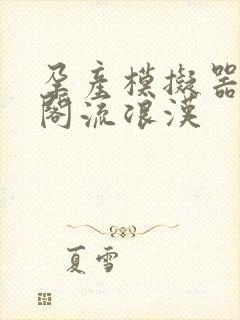 孕產模擬器
閣流浪漢
夏雪